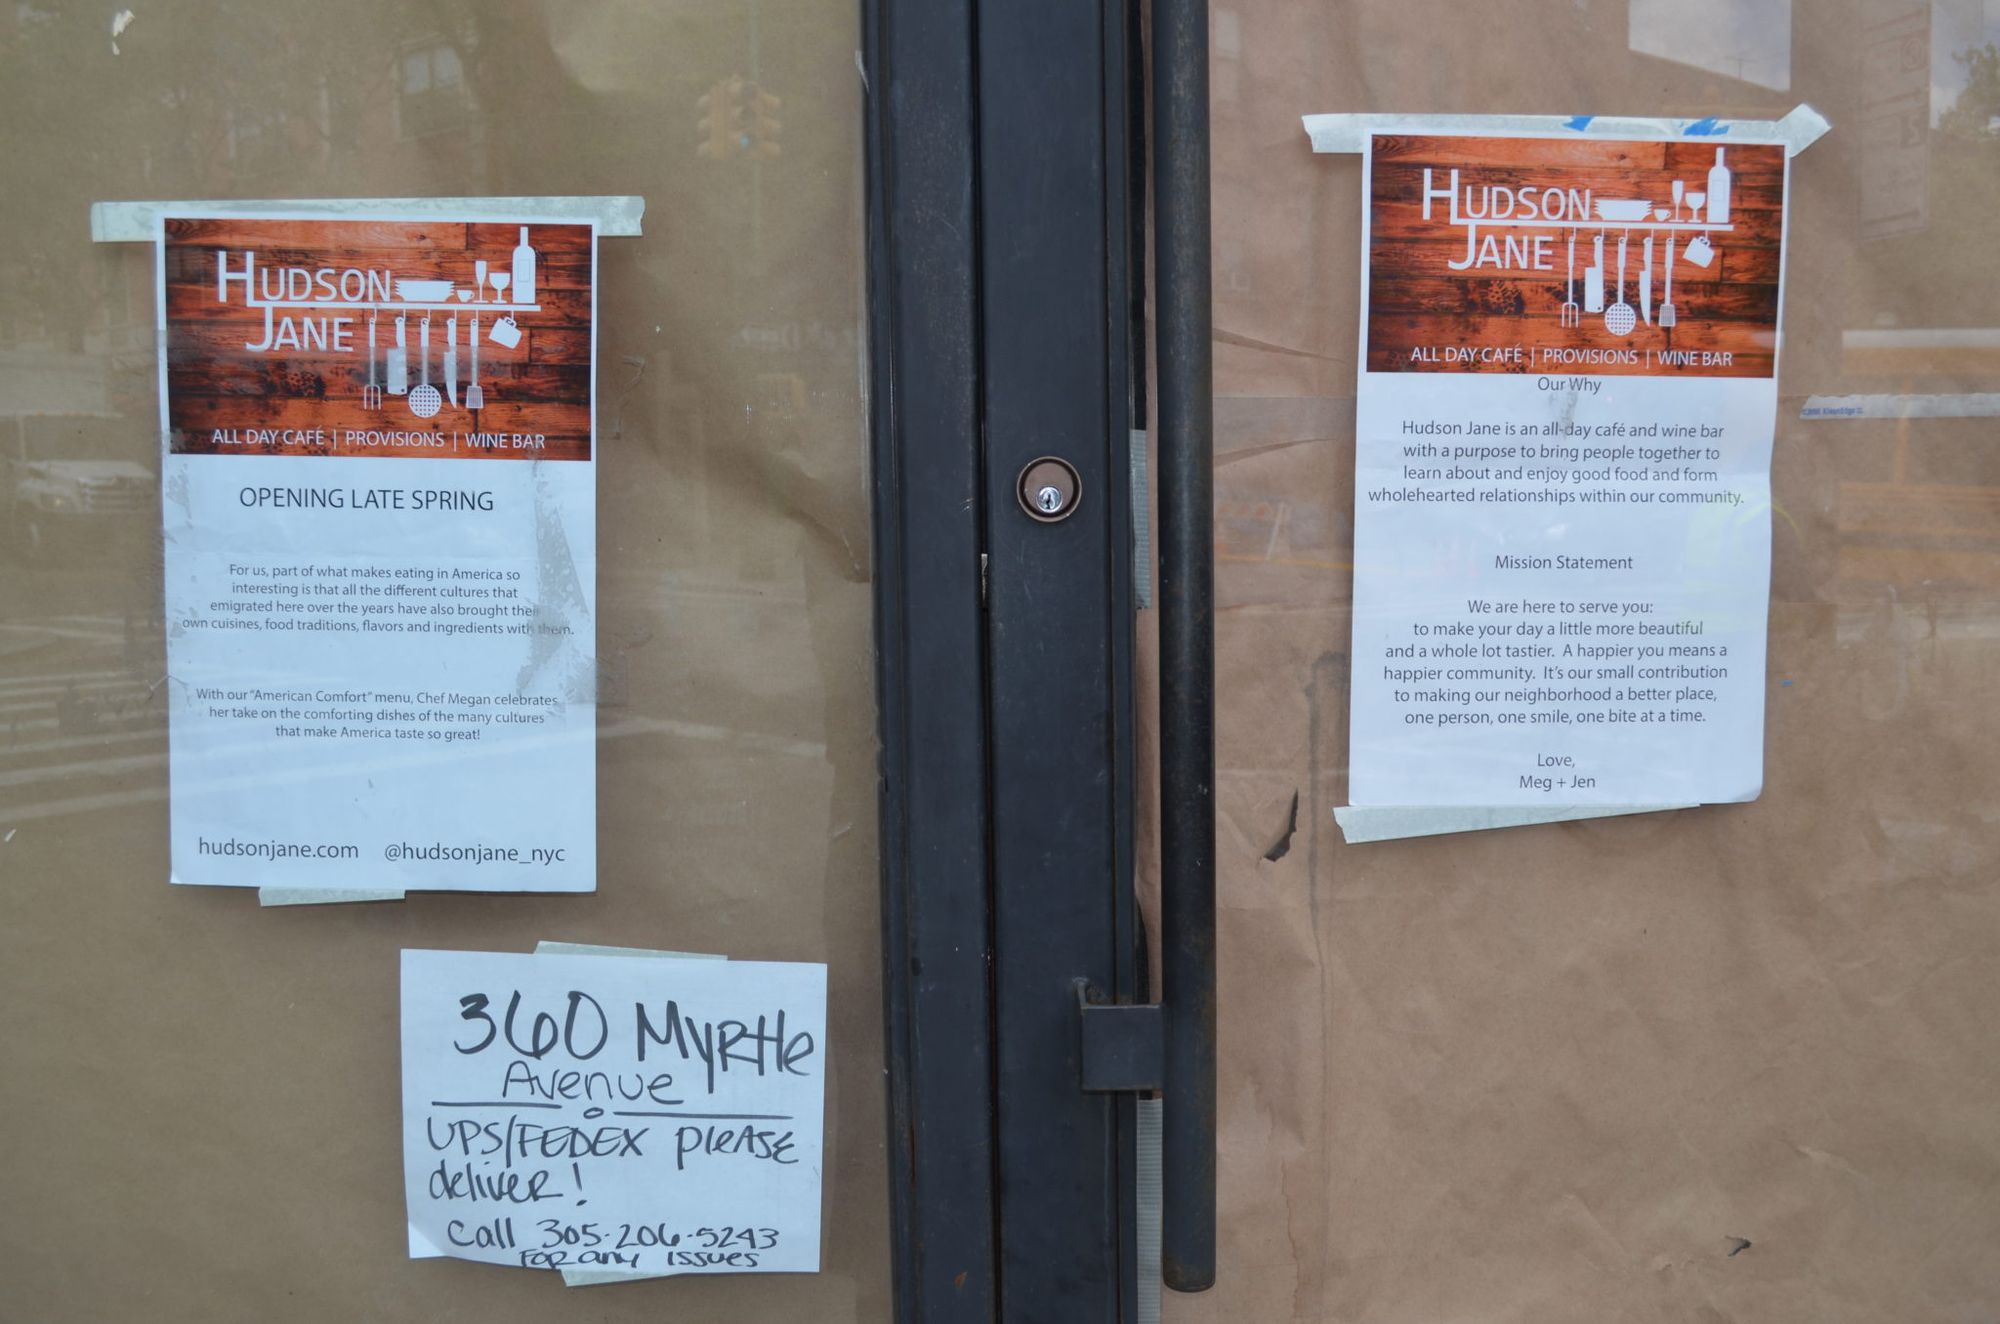 HUDSON
JANE
ALL DAY CAFÉ | PROVISIONS | WINE BAR
OPENING LATE SPRING
For us, part of what makes eating in America so
interesting is that all the different cultures that
emigrated here over the years have also brought their
own cuisines, food traditions, flavors and ingredients with them.
With our "American Comfort" menu, Chef Megan celebrates
her take on the comforting dishes of the many cultures
that make America taste so great!
hudsonjane.com @hudsonjane_nyc
360 Myrtle
Avenue
UPS/FEDEX please
deliver!
Call 305-206-5243
For any issues
HUDSON
JANE
ALL DAY CAFÉ | PROVISIONS | WINE BAR
Our Why
Hudson Jane is an all-day café and wine bar
with a purpose to bring people together to
learn about and enjoy good food and form
wholehearted relationships within our community.
Mission Statement
We are here to serve you:
to make your day a little more beautiful
and a whole lot tastier. A happier you means a
happier community. It's our small contribution
to making our neighborhood a better place,
one person, one smile, one bite at a time.
Love,
Meg + Jen